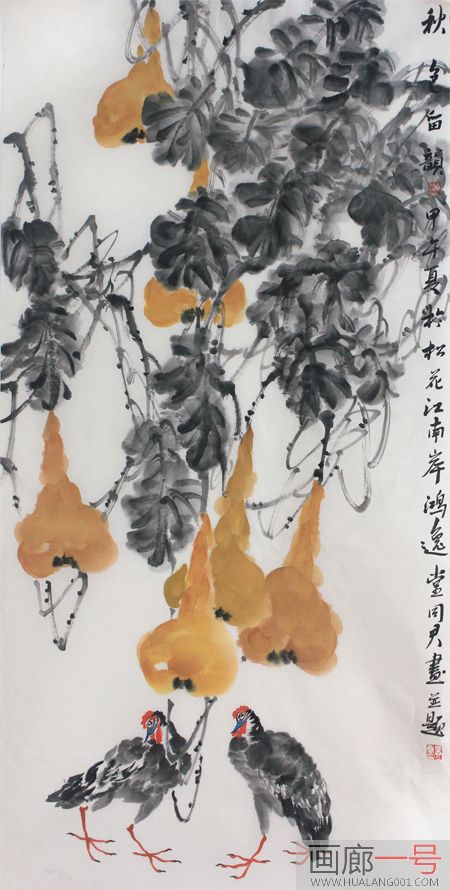 秋色留韻
甲午夏於松花江南岸鴻逸堂同君畫並題
画廊一号
WWW.HUALANG001.COM